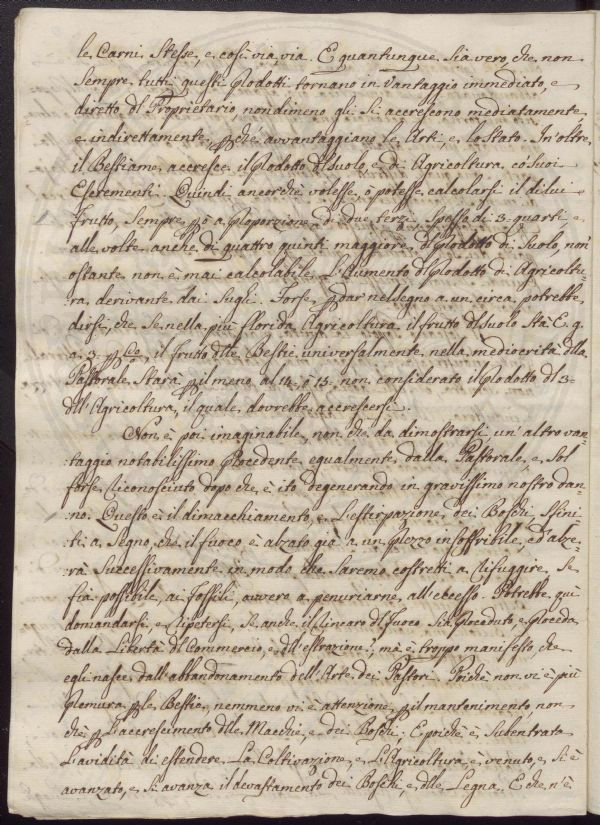 le Carni Stesse, e così via, via. E quantunque Sia vero, che non
Sempre tutti questi Prodotti tornano in Vantaggio immediato, e
diretto dl Proprietario, nondimeno gli Si accrescono mediatamente,
e indirettamente, pchè avvantaggiano le Arti, e lo Stato. In oltre,
il Bestiame accresce il Prodotto dl Suolo, e di Agricoltura có suoi
Escrementi. Quindi ancorchè volesse, o potesse calcolarsi il di lui
frutto, Sempre pò a Proporzione di due terzi Spesso di 3. quarti, e
alle volte anche di quattro quinti maggiore dl Prodotto di Suolo, non
ostante non è mai calcolabile L'Aumento dl Prodotto di Agricoltu-
:ra, derivante dai Sughi. Forse, p dar nel segno a un circa, potrebbe
dirsi, che Se nella più florida Agricoltura il frutto dl Suolo Stà E. g.
a 3. p Co, il frutto dlle Bestie universalmente nella mediocrità dlla
Pastorale Starà p il meno al 14, ò 15. non considerato il Prodotto dl 3.
dll'Agricoltura, il quale dovrebbe accrescersi.
Non è poi imaginabile, non che da dimostrarsi un'altro van-
:taggio notabilissimo Procedente egualmente dalla Pastorale, e Sol
forse riconosciuto dopo che è ito degenerando in gravissimo nostro dan-
:no. Questo è il dimacchiamento, e L'estirpazione dei Boschi Sfini-
:ti a Segno, che il fuoco è alzato già a un Prezzo insoffribile, ed alze-
:rà Successivamente in modo che Saremo costretti a rifuggire, Se
fia possibile, ai Fossili, ovvero a penuriarne all'eccesso. Potrebbe quì
domandarsi, e ripetersi, Se anche il rincaro dl Fuoco Sia Proceduto, e Proceda
dalla Libertà dl Commercio, e dll'estrazione, mà è troppo manifesto che
egli nasce dall'abbandonamento dell'Arte dei Pastori. Poichè non vi è più
premura p le Bestie, nemmeno vi è attenzione p il mantenimento, non
chè p L'accrescimento dlle Macchie, e dei Boschi; E poichè è Subentrata
L'avidità di estendere La Coltivazione, e L'Agricoltura, è venuto, e Si è
avanzato, e Si avanza il devastamento dei Boschi, e dlle Legna. E che n'è